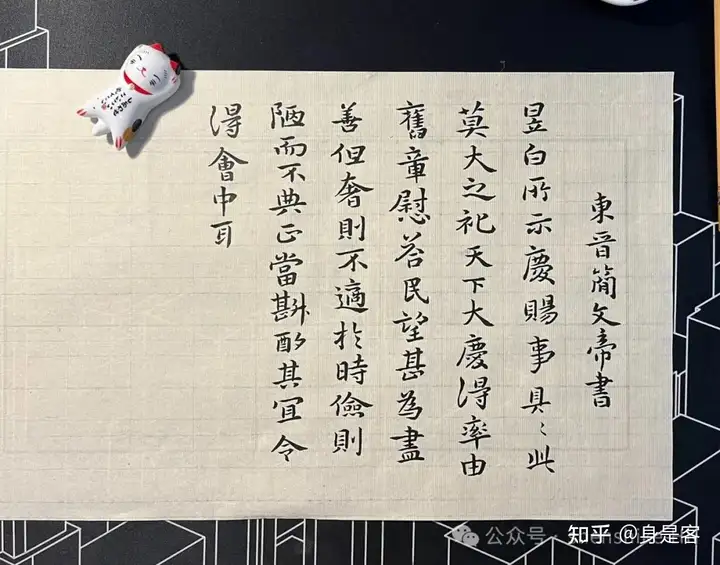 東晋簡文帝書
昱白所示慶賜事具〻此
莫大之祀天下大慶得率由
舊章慰荅民望甚為盡
善但奢則不適於時儉則
陋而不典正當斟酌其宜令
得會中耳
公众号
知乎 @身是客